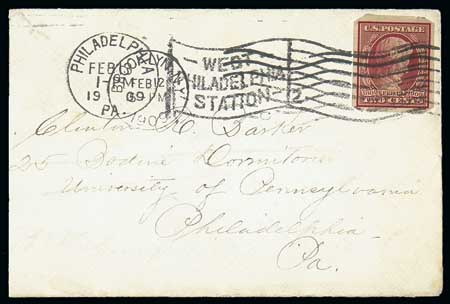 PHILADELPHIA
FEB 12
1
19 09
PA.
BROOKLYN, N.Y.
FEB 12
PM
1909
WEST
PHILADELPHIA
STATION
2
U.S. POSTAGE
TWO CENTS
Clinton H. Barker
25 Bodine Dormitories
University of Pennsylvania
Philadelphia
Pa.